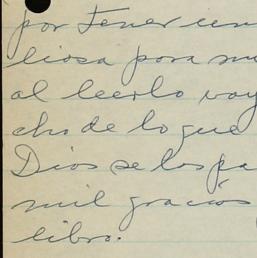 por tener un
liosa para mi
al leerlo voy
cho de lo que
Dios se los pa
mil gracias
libro.